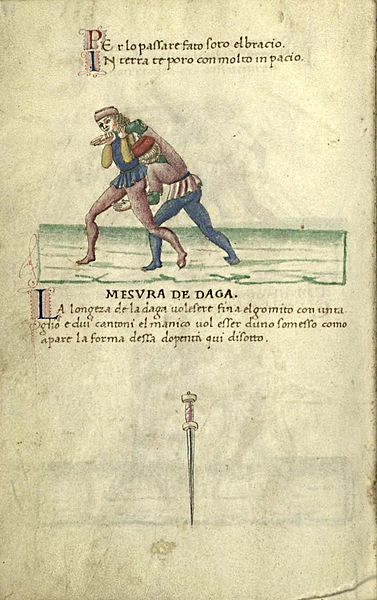 PEr lo passare fato soto el bracio.
IN terra te poro con molto in pacio.
MESVRA DE DAGA.
LA longeza de la daga vol esere fina el gomito con un ta
glio e dui cantoni el manico vol esser duno somesso como
apare la forma dessa depenta qui disotto.